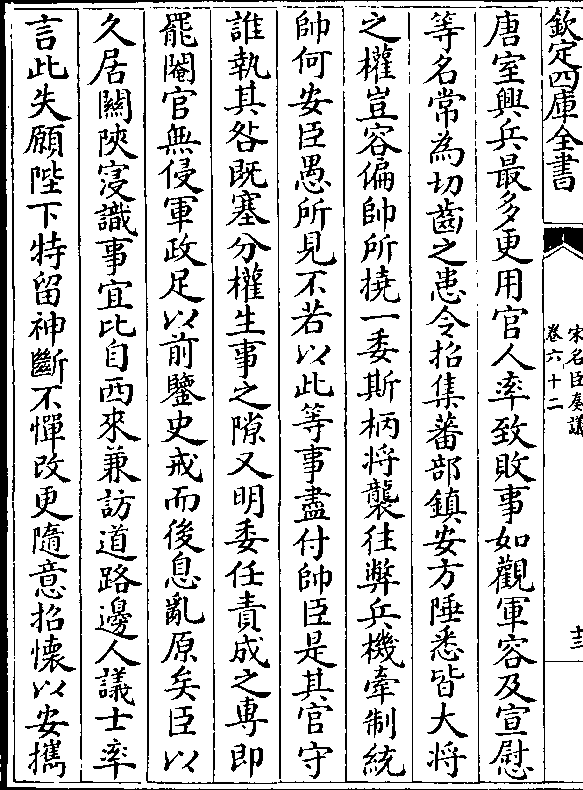 欽定四庫全書
宋名臣奏議
卷六十二
十三
唐室興兵最多更用官人率致敗事如觀軍容及宣慰
等名常為切齒之患令招集蕃部鎮安方陲悉皆大將
之權豈容偏帥所撓一委斯柄將襲往弊兵機牽制統
帥何安臣愚所見不若以此等事盡付帥臣是其官守
誰執其咎既塞分權生事之隙又明委任責成之專即
罷閹官無侵軍政足以前鑒史戒而後息亂原矣臣以
久居關陝寖識事宜比自西來兼訪道路邊人議士率
言此失願陛下特留神斷不憚改更隨意招懷以安攜